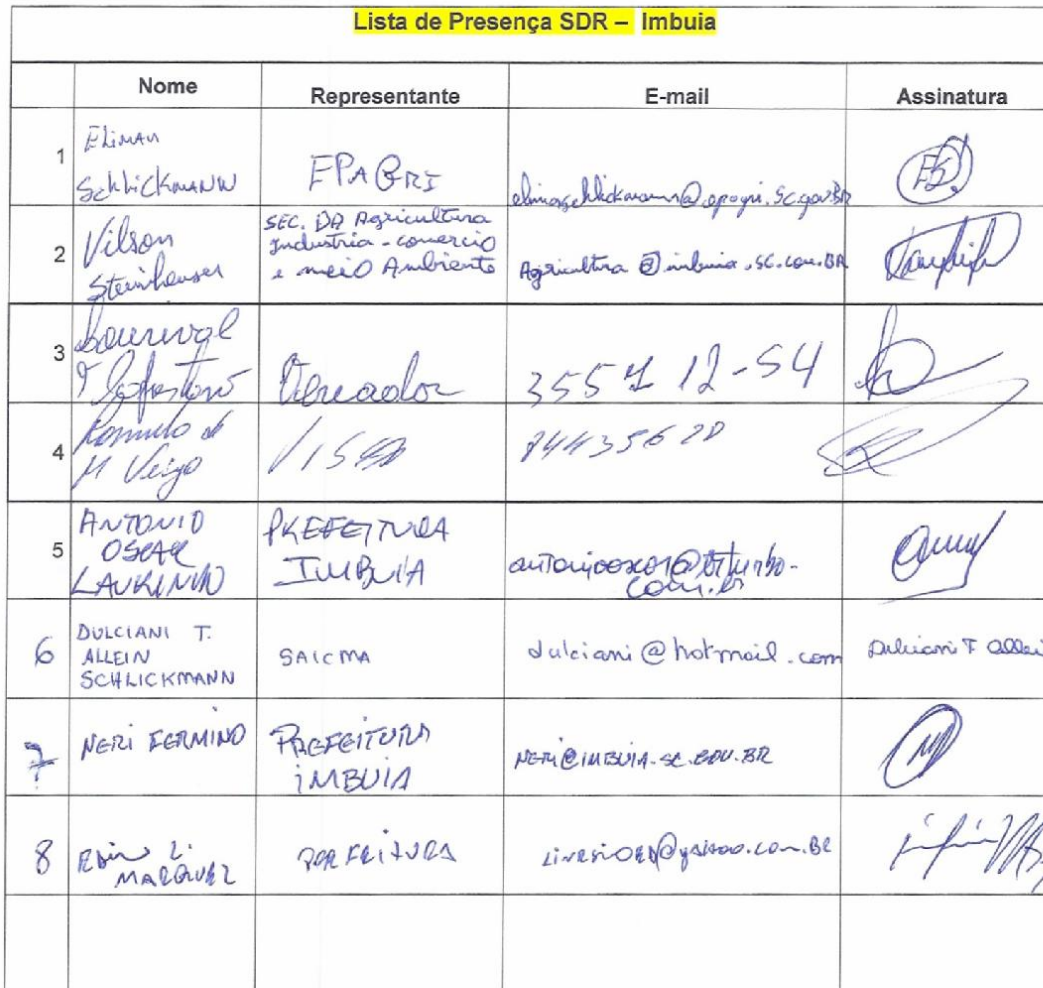 Lista de Presença SDR – Imbuia
Nome Representante E-mail Assinatura
1 Elimar Schlickmann EPAGRI
2 Vilson Steinheuser SEC. DA Agricultura Industria - comercio e meio Ambiente Agricultura @ imbuia.sc.gov.BR
3 Lourival Vereador 3557 12-54
4 Romulo de M Veigo VISA 84435620
5 ANTONIO OSCAR LAURINDO PREFEITURA IMBUIA
6 DULCIANI T. ALLEIN SCHLICKMANN SAICMA dulciani@hotmail.com Dulciani T Allei
7 NERI FERMINO PREFEITURA IMBUIA NERI@IMBUIA.SC.GOV.BR
8 MARQUEZ PREFEITURA